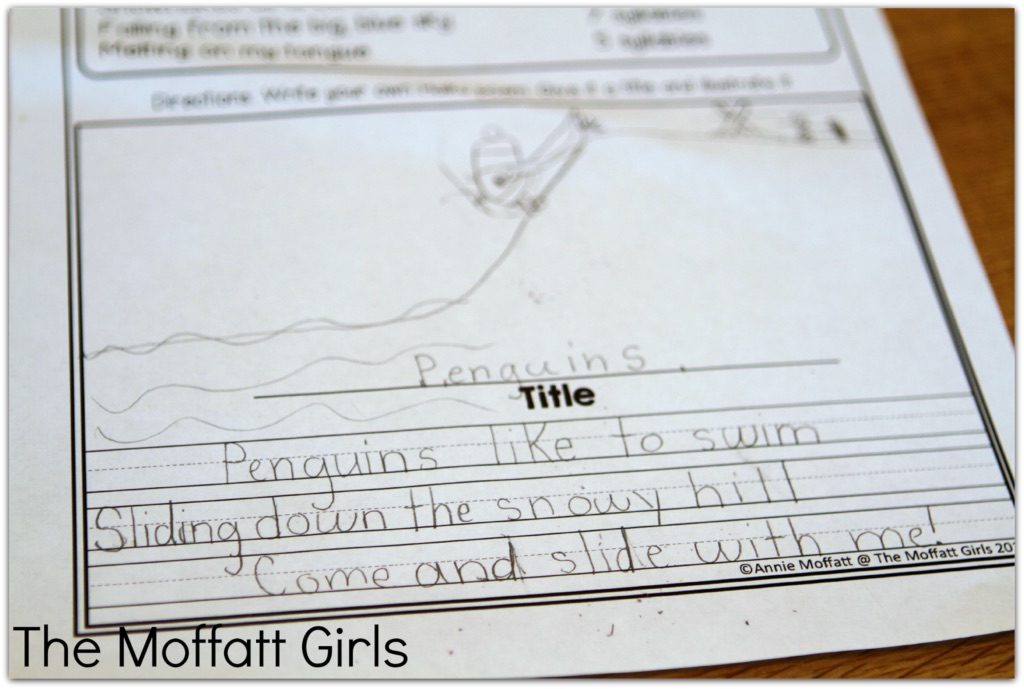 Falling from the big, blue sky 7 syllables
Melting on my tongue 5 syllables
Directions: Write your own haiku poem. Give it a title and illustrate it.
Penguins
Title
Penguins like to swim
Sliding down the snowy hill
Come and slide with me!
©Annie Moffatt @ The Moffatt Girls 201
The Moffatt Girls